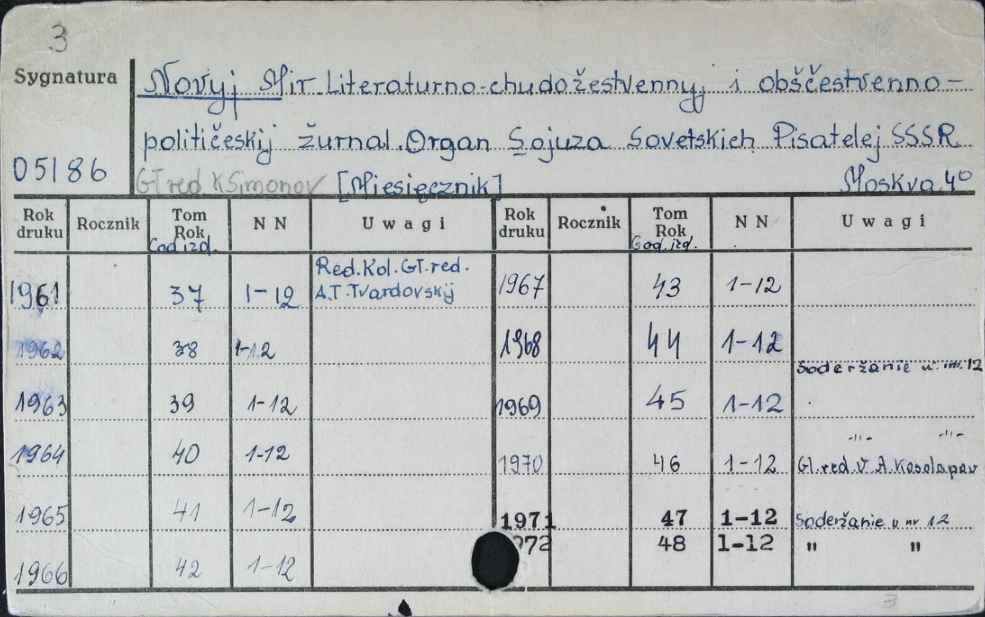 3
Sygnatura
05186
Novyj Mir. Literaturno-chudožestvennyj i obščestvenno-
političeskij žurnal. Organ Sojuza Sovetskich Pisatelej SSSR
Gł red K Simonov [Miesięcznik] Moskva 40
Rok druku Rocznik Tom Rok God izd. N N Uwagi Rok druku Rocznik Tom Rok God. izd. N N Uwagi
1961 37 1-12 Red. Kol. Gł. red. A.T. Tvardovskij
1962 38 1-12
1963 39 1-12
1964 40 1-12
1965 41 1-12
1966 42 1-12
1967 43 1-12
1968 44 1-12 Soderžanie
1969 45 1-12 -"- -"-
1970 46 1-12 Gl. red. V A. Kosolapov
1971 47 1-12 Soderžanie v nr 12
972 48 1-12 " "
3